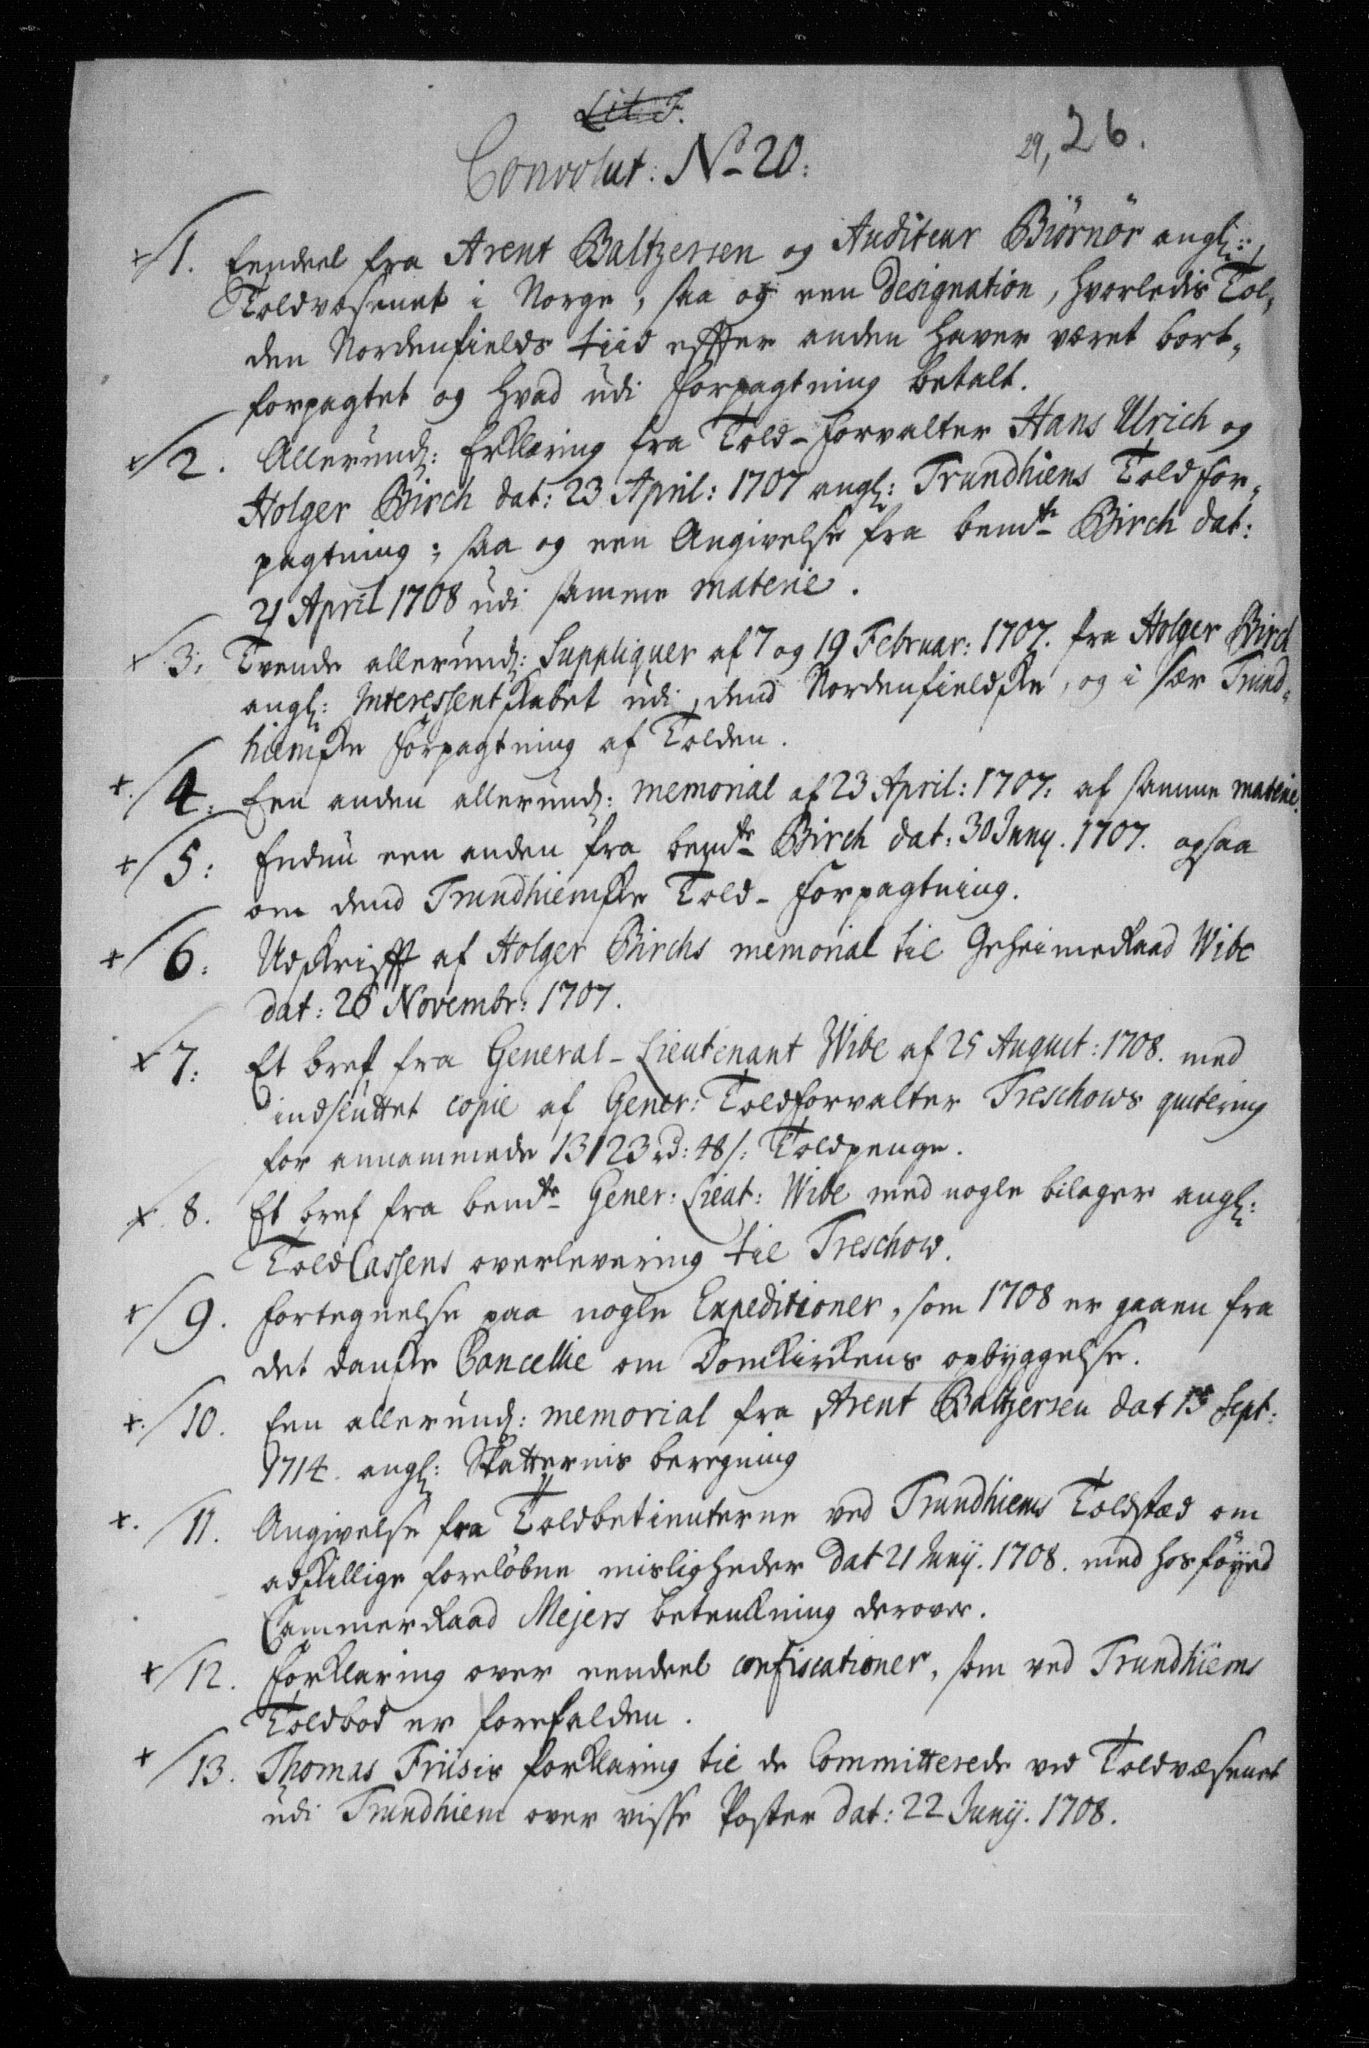 Lit. F.
29, 26.
Convolut: No 20:
+/1. Eendeel fra Arent Baltzersen og Auditeur Biörnör angl:
Toldvæsenet i Norge, saa og een Designation, hvorledis Tol-
den Nordenfields tiid effter anden haver været bort-
forpagtet og hvad udi Forpagtning betalt.
+/2. Allerund: Erklæring fra Told-Forvalter Hans Ulrich og
Holger Birch dat: 23 April: 1707 angl: Trundhiems Toldfor-
pagtning; saa og een Angivelse fra bemdte Birch dat:
21 April 1708 udi samme materie.
+ 3. Tvende allerund: Suppliquer af 7 og 19 Februar: 1707. fra Holger Birch
angl: Interessentskabet udi, dend Nordenfieldske, og i sær Trund-
hiemske Forpagtning af Tolden.
+/4: Een anden allerund: memorial af 23 April: 1707: af samme materie.
+/5: Endnu een anden fra bemdte Birch dat: 30 Juny. 1707. ogsaa
om dend Trundhiemske Told-Forpagtning.
+/6: Udskrifft af Holger Birchs memorial til Geheimeraad Wibe
dat: 26 Novembr: 1707.
+ 7: Et bref fra General-Lieutenant Wibe af 25 August: 1708. med
indsluttet copie af Gener: Toldforvalter Treschows qvitering
for annammede 13123 rd: 48 s: Toldpenge.
+ 8. Et bref fra bemdte Gener: Lieut: Wibe med nogle bilager angl:
ToldCassens overlevering til Treschow.
+/9. Fortegnelse paa nogle Expeditioner, som 1708 er gaaen fra
det danske Cancellie om Domkirkens opbyggelse.
+/10. Een allerund: memorial fra Arent Baltzersen dat 15 Sept:
1714. angl: Skatternis beregning
+/11. Angivelse fra Toldbetienterne ved Trundhiems Toldstæd om
adskillige foreløbne misligheder dat 21 Junij. 1708. med hosføyed
Cammerraad Mejers betenkning derover.
+/12. Forklaring over eendeel confiscationer, som ved Trundhiems
Toldbod er forefalden.
+/13. Thomas Friisis Forklaring til de Committerede ved Toldvæsenet
udi Trundhiem over visse Poster dat: 22 Junij. 1708.